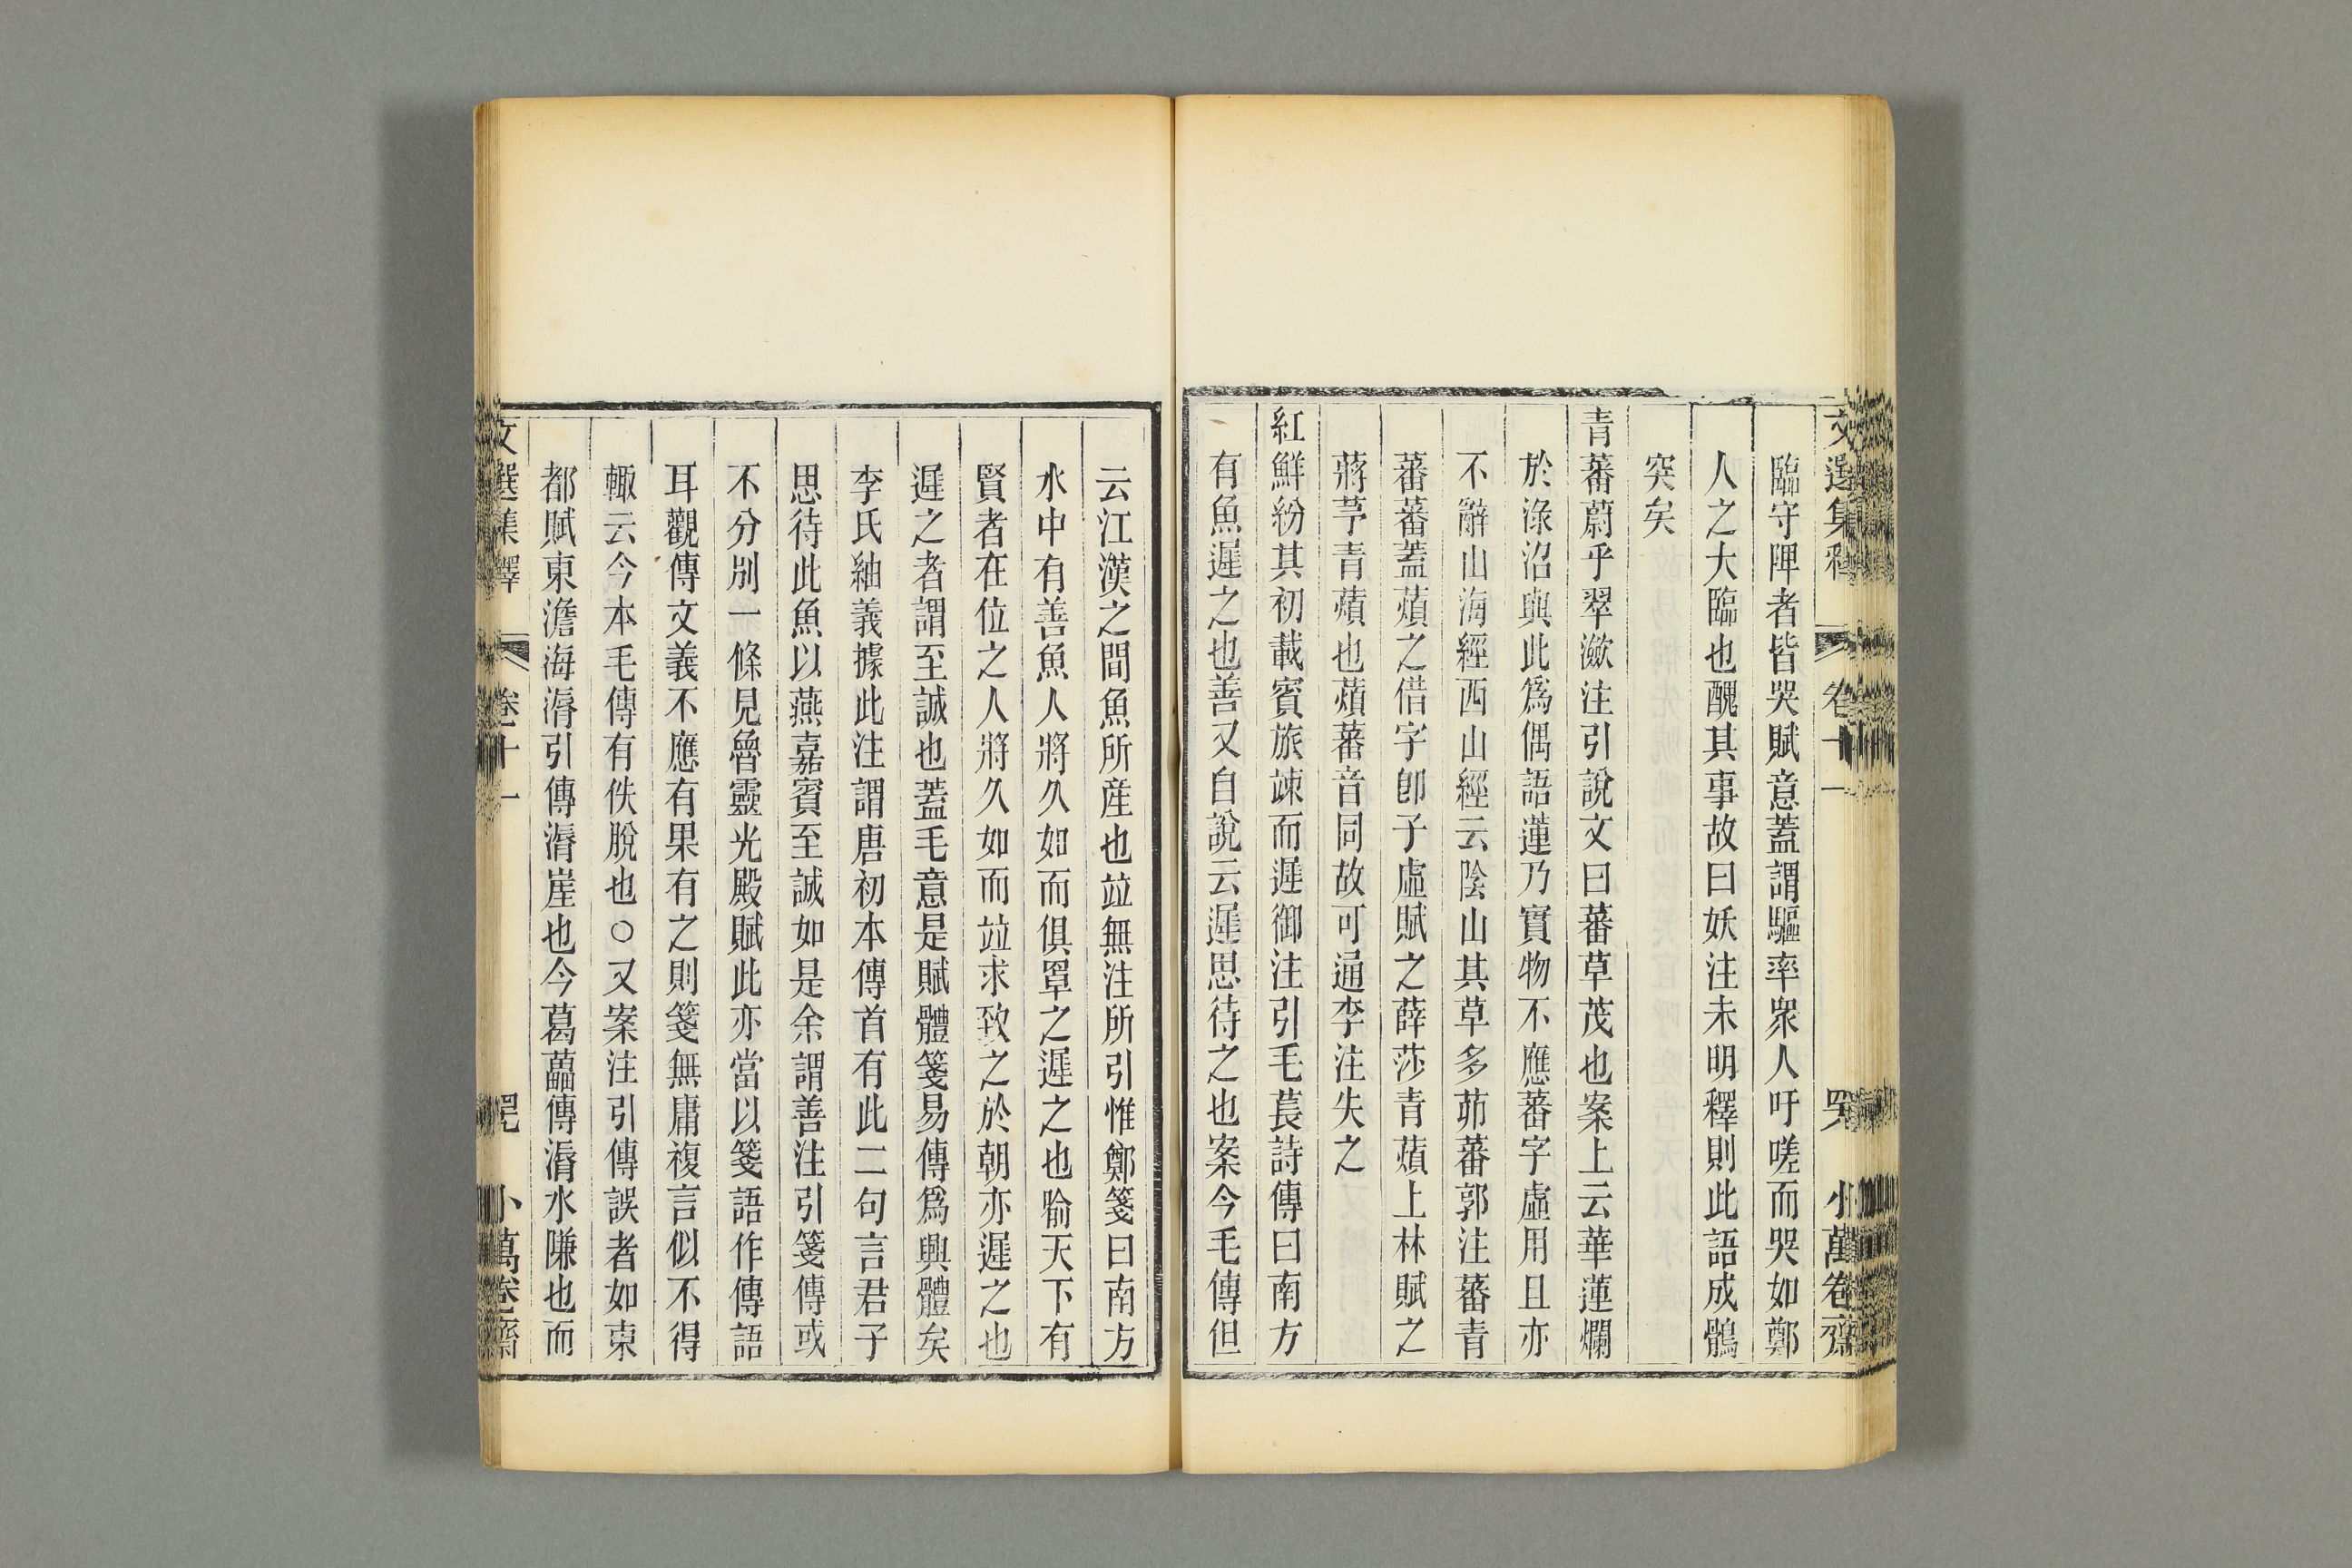 文選集釋 卷十一 小萬卷齋
臨守陴者皆哭賦意蓋謂驅率衆人吁嗟而哭如鄭
人之大臨也醜其事故曰妖注未明釋則此語成鶻
突矣
青蕃蔚乎翠瀲注引說文曰蕃草茂也案上云華蓮爛
於淥沼與此爲偶語蓮乃實物不應蕃字虛用且亦
不辭山海經西山經云陰山其草多茆蕃郭注蕃青
蕃蕃蓋薠之借字卽子虛賦之薛莎青薠上林賦之
蔣芧青薠也薠蕃音同故可通李注失之
紅鮮紛其初載賓旅竦而遲御注引毛萇詩傳曰南方
有魚遲之也善又自說云遲思待之也案今毛傳但
云江漢之間魚所產也竝無注所引惟鄭箋曰南方
水中有善魚人將久如而俱罩之遲之也喻天下有
賢者在位之人將久如而竝求致之於朝亦遲之也
遲之者謂至誠也蓋毛意是賦體箋易傳爲興體矣
李氏紬義據此注謂唐初本傳首有此二句言君子
思待此魚以燕嘉賓至誠如是余謂善注引箋傳或
不分別一條見魯靈光殿賦此亦當以箋語作傳語
耳觀傳文義不應有果有之則箋無庸複言似不得
輙云今本毛傳有佚脫也○又案注引傳誤者如東
都賦東澹海漘引傳漘崖也今葛藟傳漘水隒也而
文選集釋 卷十一 小萬卷齋